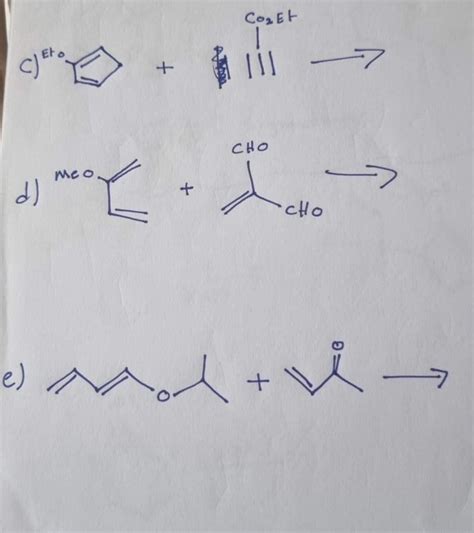 CO₂Et
c) EtO + |||
CHO
d) MeO + CHO
O
e) O +